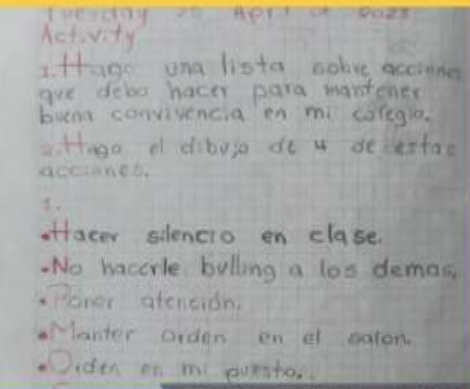 Tuesday 25 April of 2023
Activity
1. Hago una lista sobre acciones
que debo hacer para mantener
buena convivencia en mi colegio.
2. Hago el dibujo de 4 de estas
acciones.
1.
•Hacer silencio en clase.
•No hacerle bulling a los demas.
•Poner atención.
•Manter orden en el salon.
•Orden en mi puesto.